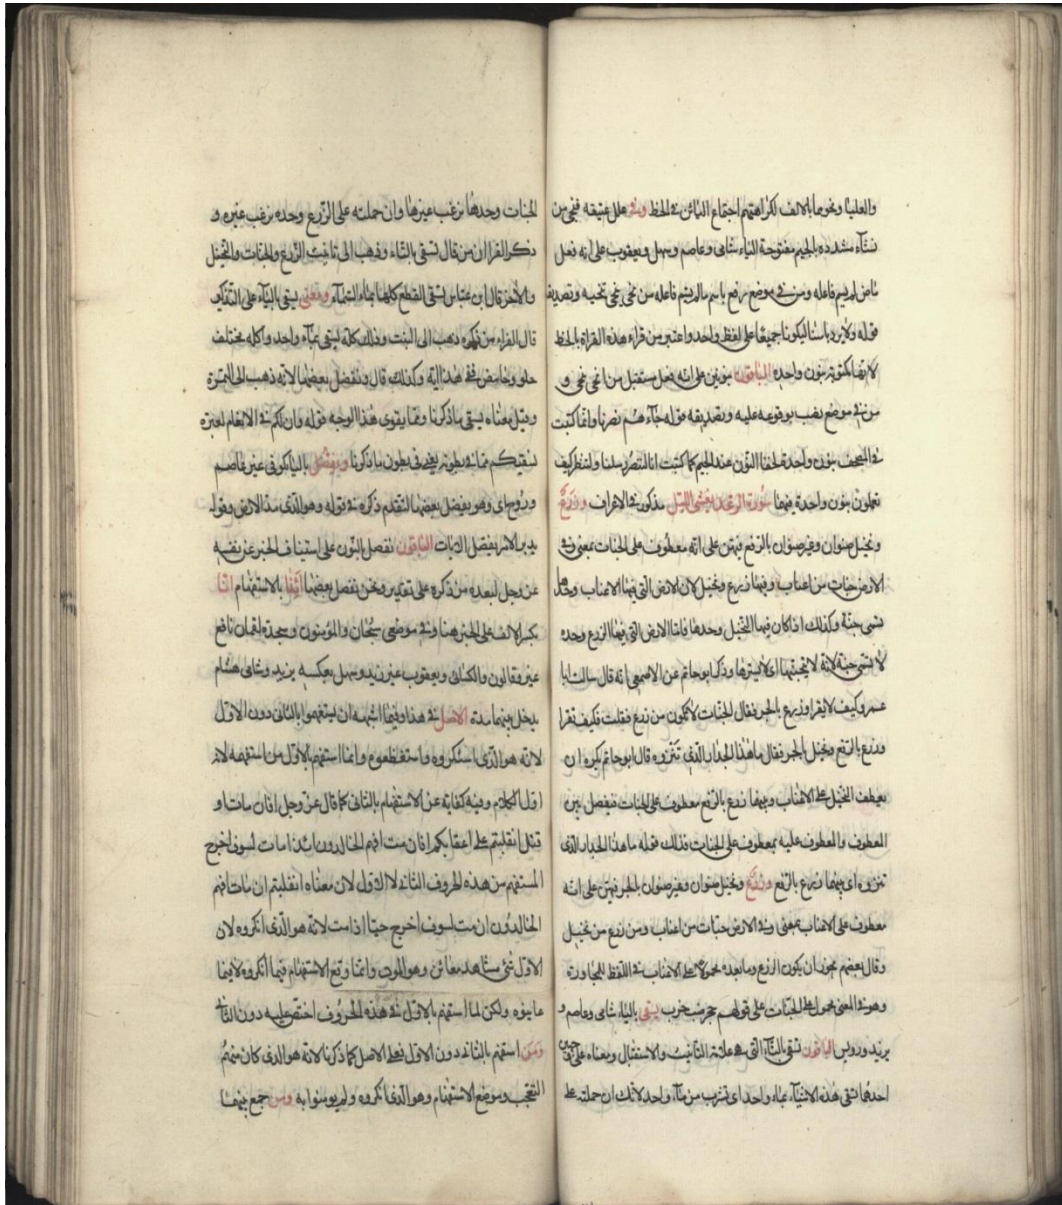 والعليا ونحوها بالالف لكراهتهم اجتماع اليائين في الخط وفي علل عتيقه فنجي من
نشآء مشدده بالجيم مفتوحة الياء شامى وعاصم وسهل ويعقوب على انه فعل
ماض لم يسم فاعله ومن في موضع رفع باسم مالم يسم فاعله من نجى نجى تنجيه وتصديقه
قوله ولا يرد باسنا ليكونا جميعا على لفظ واحد واعتبر من قراء هذه القراة بالخط
لانها مكتوبه بنون واحده الباقون بنونين على انه فعل مستقبل من انجى نجى و
من في موضع نصب بوقوعه عليه وتصديقه قوله جآء هم نصرنا وانما كتبت
في المصحف بنون واحدة فحذفنا النون عند الجيم كما كتبت انا لننصر رسلنا ولننظر كيف
تعملون بنون واحدة فيهما سورة الرعد يغشى الليل مذكور في الاعراف وزرع
ونخيل صنوان وغير صنوان بالرفع فيهن على انه معطوف على الجنات بمعنى وفي
الارض جنات من اعناب وفيها زرع ونخيل لان الارض التى فيها الاعناب وحدها
تسمى جنة وكذلك اذا كان فيها النخيل وحدها فاما الارض التى فيها الزرع وحده
لا تسمى جنة لانه لا يجنها اى لا يسترها وذكر ابو حاتم عن الاصمعى انه قال سالت ابا
عمرو كيف لا يقرا وزرع بالجر فقال الجنات لا تكون من زرع فقلت فكيف تقرا
وزرع بالرفع ونخيل بالجر فقال ما هذا الجذار الذى تنزوه قال ابو حاتم يكره ان
يعطف النخيل على الاعناب وبينهما زرع بالرفع معطوف على الجنات فيفصل بين
المعطوف والمعطوف عليه بمعطوف على الجنات فذلك قوله ما هذا الجدار الذى
تنزوه اى بينهما وزرع بالرفع وزرع ونخيل صنوان وغير صنوان بالجر فيهن على انه
معطوف على الاعناب بمعنى وفي الارض جنات من اعناب ومن زرع من نخيل
وقال بعضهم يجوز ان يكون الزرع وما بعده محمولا على الاعناب في اللفظ للمجاورة
وهو في المعنى محمول على الجنات على قولهم حجر ضب خرب يسقى بالياء شامى وعاصم و
يزيد ورويس الباقون تسقى بالتآء التى هى علامة التانيث والاستقبال ومعناه على وجهين
احدهما تسقى هذه الاشيآء بمآء واحد اى تشرب من مآء واحد لانك ان حملته على
الجنات وحدها ترغب عن غيرها وان حملته على الزرع وحده ترغب غيره و
ذكر الفرا ان من قال تسقى بالتاء وذهب الى تانيث الزرع والجنات والنخيل
والارض قال ابن عباس تسقى القطع كلها بماء السمآء ومعنى يسقى باليآء على التذكير
قال الفراء من ذكره ذهب الى النبت وذلك كله يسقى بمآء واحد واكله مختلف
حلو وحامض ففى هذا اية وكذلك قال ونفضل بعضها الا انه ذهب الى الثمرة
وقيل معناه يسقى ما ذكرنا ومما يقوى هذا الوجه قوله وان لكم في الانعام لعبرة
نسقيكم مما في بطونه يعنى في بطون ما ذكرنا ويفضل باليا كوفى غير عاصم
وروح اى وهو يفضل بعضها لتقدم ذكره في قوله وهو الذى مد الارض وقوله
يدبر الامر يفصل الايات الباقون نفضل بالنون على استيناف الخبر عن نفسه
عز وجل لبعده من ذكره على تقدير ونحن نفضل بعضها ائذا بالاستفهام انا
بكسر الالف على الخبر هنا وفي موضعى سبحان والمؤمنون وسجدة لقمان نافع
غير قالون والكسائى ويعقوب غير زيد وسهل بعكسه يزيد وشامى هشام
يدخل بينهما مدة الاصل في هذا وفيما اشبهه ان يستفهموا بالثانى دون الاول
لانه هو الذى استنكروه واستفظعوه وانما استفهم بالاول من استفهمه لانه
اول الكلام وفيه كفاية عن الاستفهام بالثانى كما قال عز وجل افان مات او
قتل انقلبتم على اعقابكم افان مت افهم الخالدون ائذا مامت لسوف اخرج
المستفهم من هذه الحروف الثانى لا الاول لان معناه انقلبتم ان مات افهم
الخالدون ان مت لسوف اخرج حيا اذا مت لانه هو الذى انكروه لان
الاول شئ مشاهد معائن وهو الموت وانما وقع الاستفهام فيما انكروه لا فيما
عاينوه ولكن لما استفهم بالاول في هذه الحروف اختص عليه دون الثانى
ومن استفهم بالثانى دون الاول فعلى الاصل كما ذكرنا لانه هو الذى كان منهم
التعجب وموضع الاستفهام وهو الذى انكروه ولم يومنوا به ومن جمع بينهما